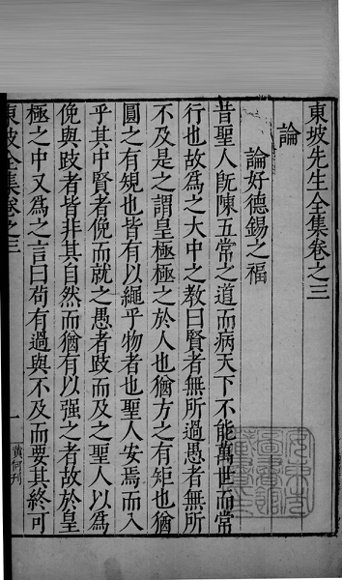 東坡先生全集卷之三
論
論好德錫之福
昔聖人旣陳五常之道而病天下不能萬世而常
行也故為之大中之教曰賢者無所過愚者無所
不及是之謂皇極極之於人也猶方之有矩也猶
圓之有規也皆有以繩乎物者也聖人安焉而入
乎其中賢者俛而就之愚者跂而及之聖人以為
俛與跂者皆非其自然而猶有以强之者故於皇
極之中又為之言曰苟有過與不及而要其終可
東坡全集卷之三
一
黃何刊